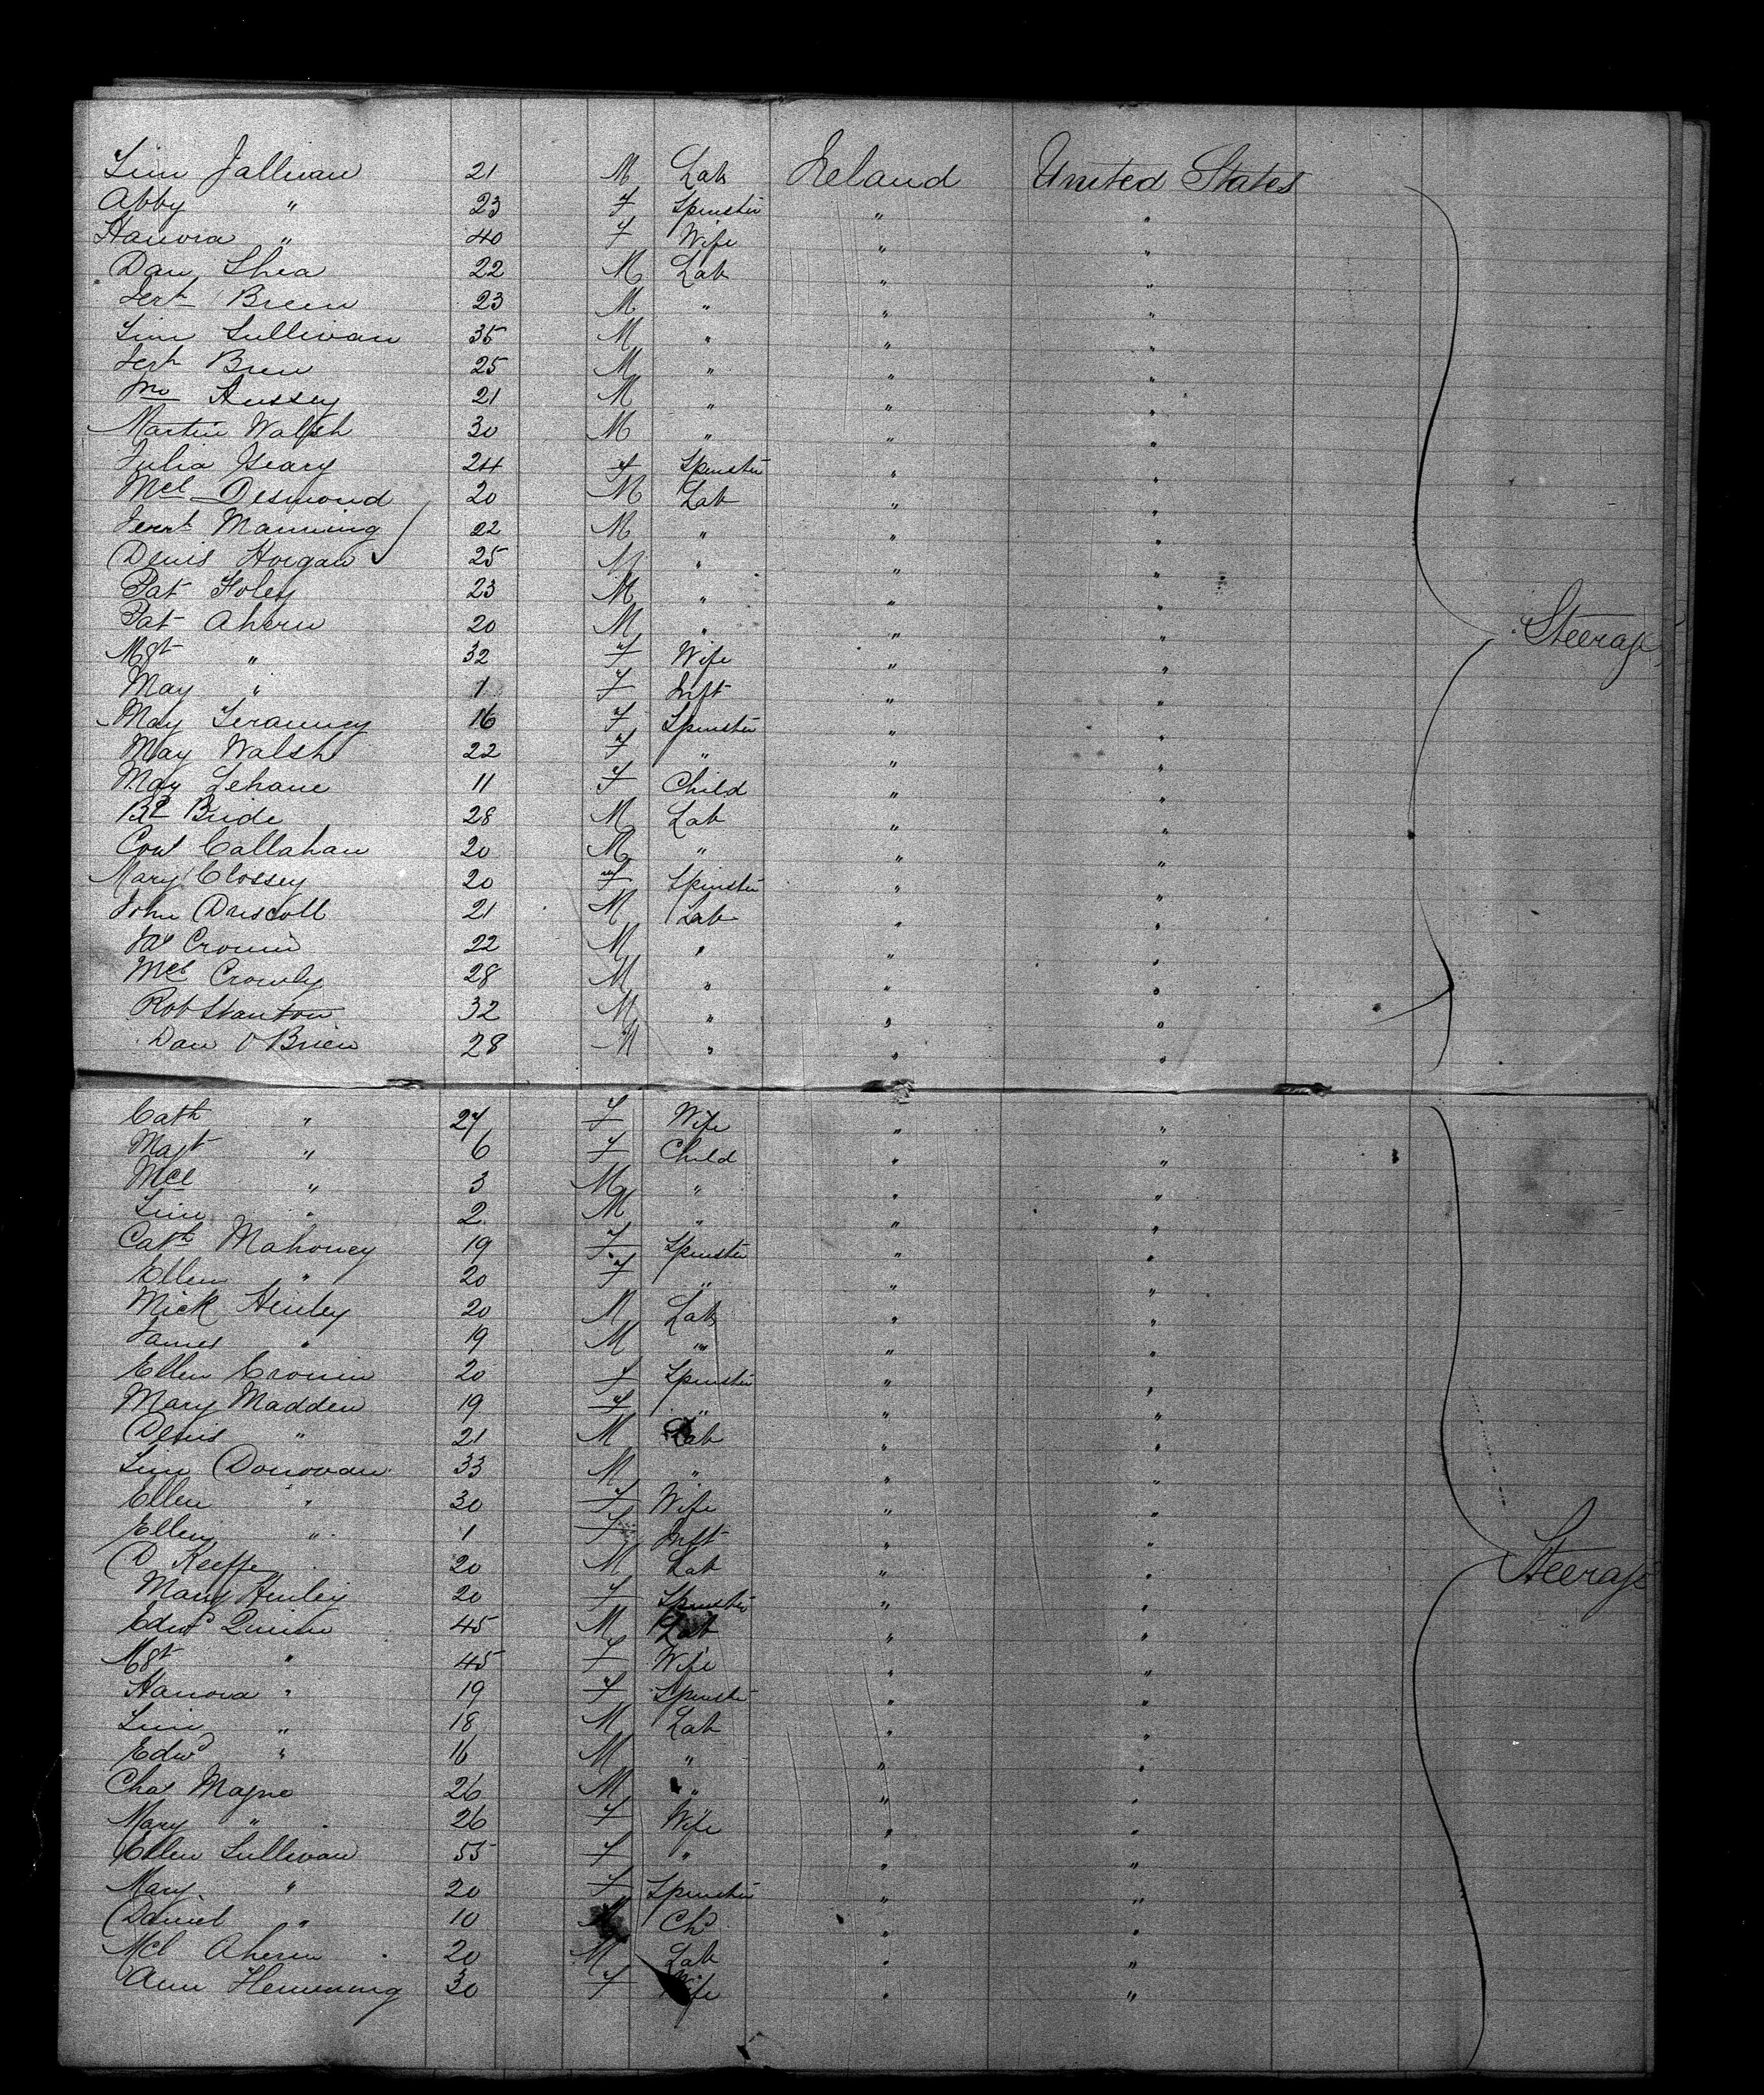 Tim Sullivan 21 M Lab Ireland United States
Abby " 23 F Spinster " "
Hanora " 40 F Wife " "
Dan Shea 22 M Lab " "
Jerh Breen 23 M " " "
Tim Sullivan 35 M " " "
Jerh Breen 25 M " " "
Jno Hussey 21 M " " "
Martin Walsh 30 M " " "
Julia Geary 24 F Spinster " "
Mcl Desmond 20 M Lab " "
Jerrh Manning 22 M " " "
Denis Horgan 25 M " " "
Pat Foley 23 M " " "
Pat Ahern 20 M " " " Steerage
Mgt " 32 F Wife " "
May " 1 F Inft " "
May 16 F Spinster " "
May Walsh 22 F " " "
May Lehane 11 F Child " "
Bride 28 M Lab " "
Corn Callahan 20 M " " "
Mary Clossey 20 F Spinster " "
John Driscoll 21 M Lab " "
Jas Cronin 22 M " " "
Mcl Crowly 28 M " " "
Rob Stanton 32 M " " "
Dan O'Brien 28 M " " "
Cath " 27 F Wife " "
Magt " 6 F Child " "
Mcl " 3 M " " "
Tim " 2 M " " "
Cath Mahoney 19 F Spinster " "
Ellen " 20 F " " "
Mick Henley 20 M Lab " "
James " 19 M " " "
Ellen Cronin 20 F Spinster " "
Mary Madden 19 F " " "
Denis " 21 M Lab " "
Tim Donovan 33 M " " "
Ellen " 30 F Wife " "
Ellen " 1 F Inft " "
D Keeffe 20 M Lab " " Steerage
Mary Henley 20 F Spinster " "
Edwd Quinn 45 M Lab " "
Mgt " 45 F Wife " "
Hanora " 19 F Spinster " "
Tim " 18 M Lab " "
Edwd " 16 M " " "
Chas Magno 26 M " " "
Mary " 26 F Wife " "
Ellen Sullivan 55 F " " "
Mary " 20 F Spinster " "
Daniel " 10 M Chd " "
Mcl Ahern 20 M Lab " "
Ann Hemming 30 F Wife " "